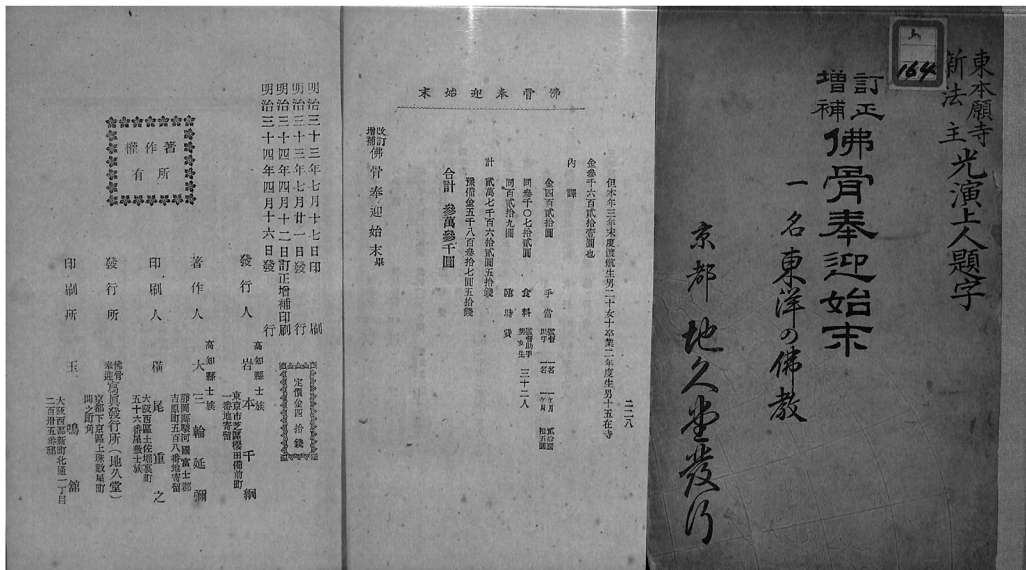 東本願寺
新法主光演上人題字
訂正
増補
佛骨奉迎始末
一名東洋の佛教
京都 地久堂發行
164
佛骨奉迎始末
二二八
但本年三年末度渡航生男二十女十卒業二年度生男十五在寺
金參千六百貳拾壹圓也
內譯
金四百貳拾圓 手當 監督 一名 一ヶ月 貳拾圓
助手 一名 一ヶ月 拾五圓
同參千〇七拾貳圓 食料 監督助手 三十二人
同百貳拾九圓 臨時費
計 貳萬七千百六拾貳圓五拾錢
豫備金五千八百參拾七圓五拾錢
合計 參萬參千圓
改訂
增補 佛骨奉迎始末 畢
明治三十三年七月十七日印刷
明治三十三年七月廿一日發行
明治三十四年四月十二日訂正增補印刷
明治三十四年四月十六日發行
定價金四拾錢
著作
權所
有
發行人 高知縣士族 岩本千綱
東京市芝區櫻田備前町
一番地寄留
著作人 高知縣士族 大三輪延彌
靜岡縣駿河國富士郡
吉原町五百八番地寄留
印刷人 橫尾重之
大阪西區土佐堀裏町
五十六番屋敷士族
發行所 佛骨
奉迎 寫眞發行所(地久堂)
京都下京區上珠數屋町
間之町角
印刷所 玉鳴舘
大阪西區新町北通一丁目
二百卅五番邸